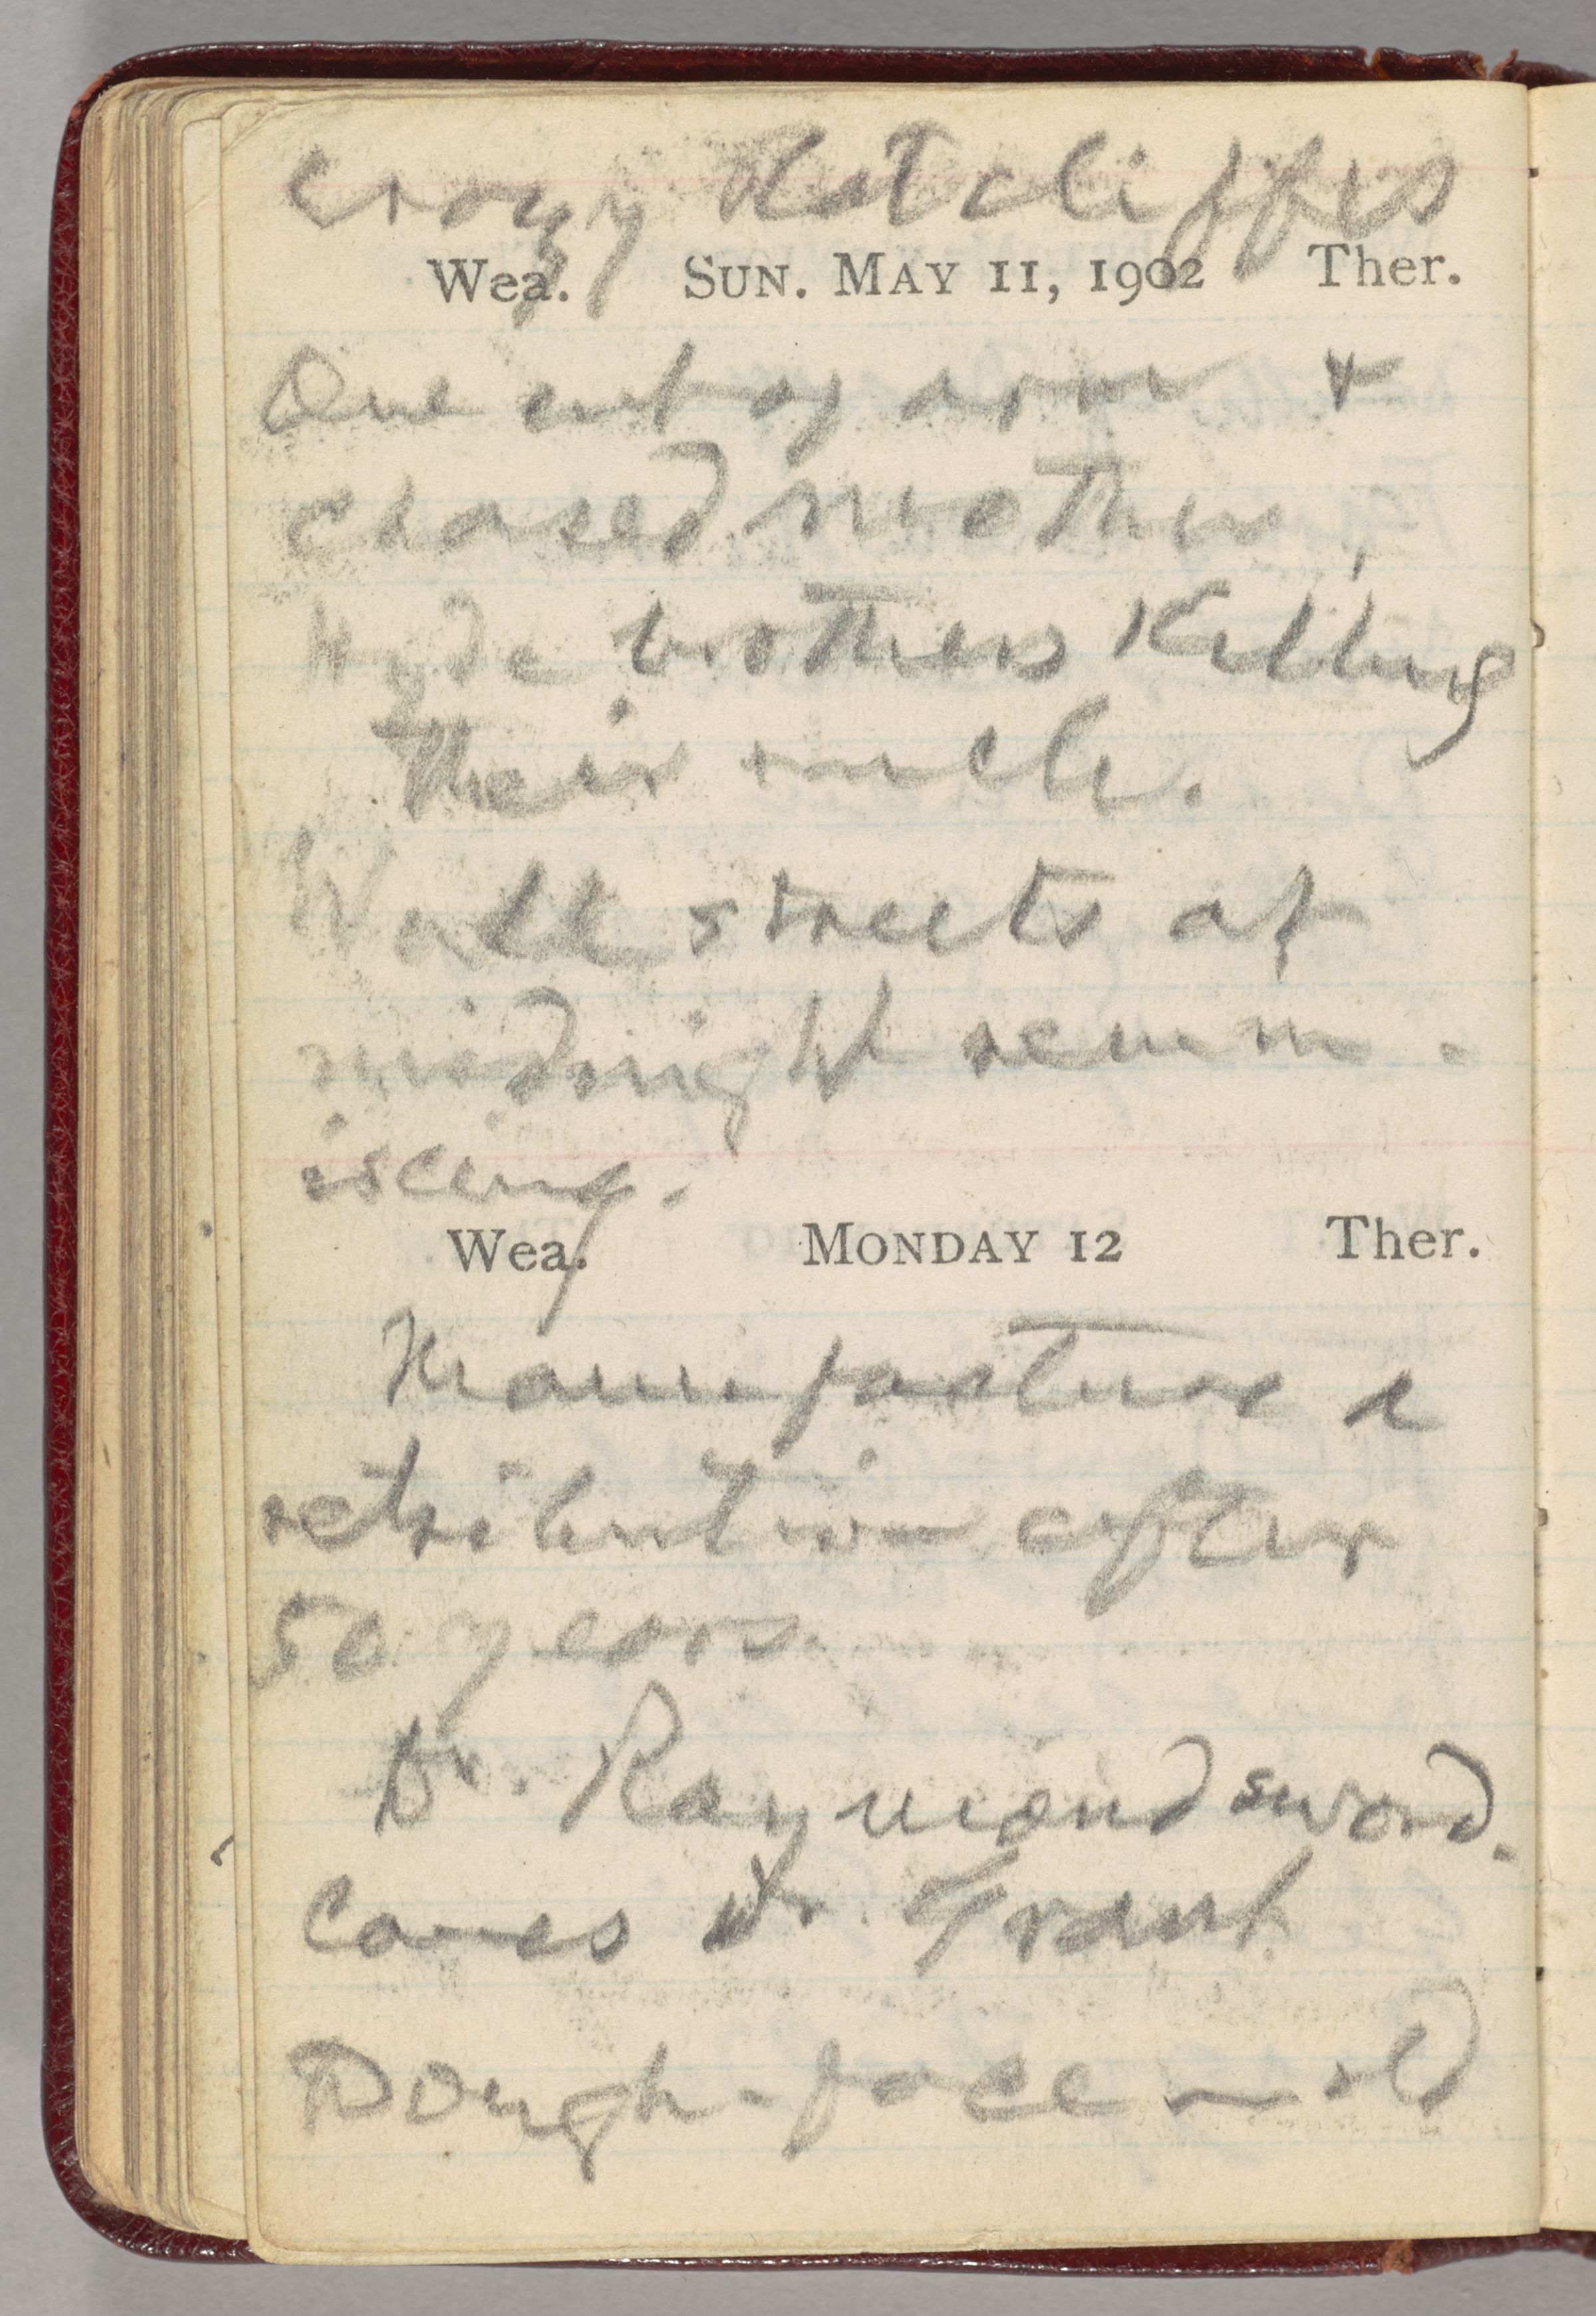 Crazy Ratcliffes
Wea. SUN. MAY 11, 1902 Ther.
One cut off arm &
chased mother,
Hyde brothers Killing
their uncle.
Walk streets at
midnight remin-
iscing.
Wea. MONDAY 12 Ther.
Manufacture a
retribution after
50 years.
Dr. Raymond sword.
Canes Dr. Grant
Dough-face — old